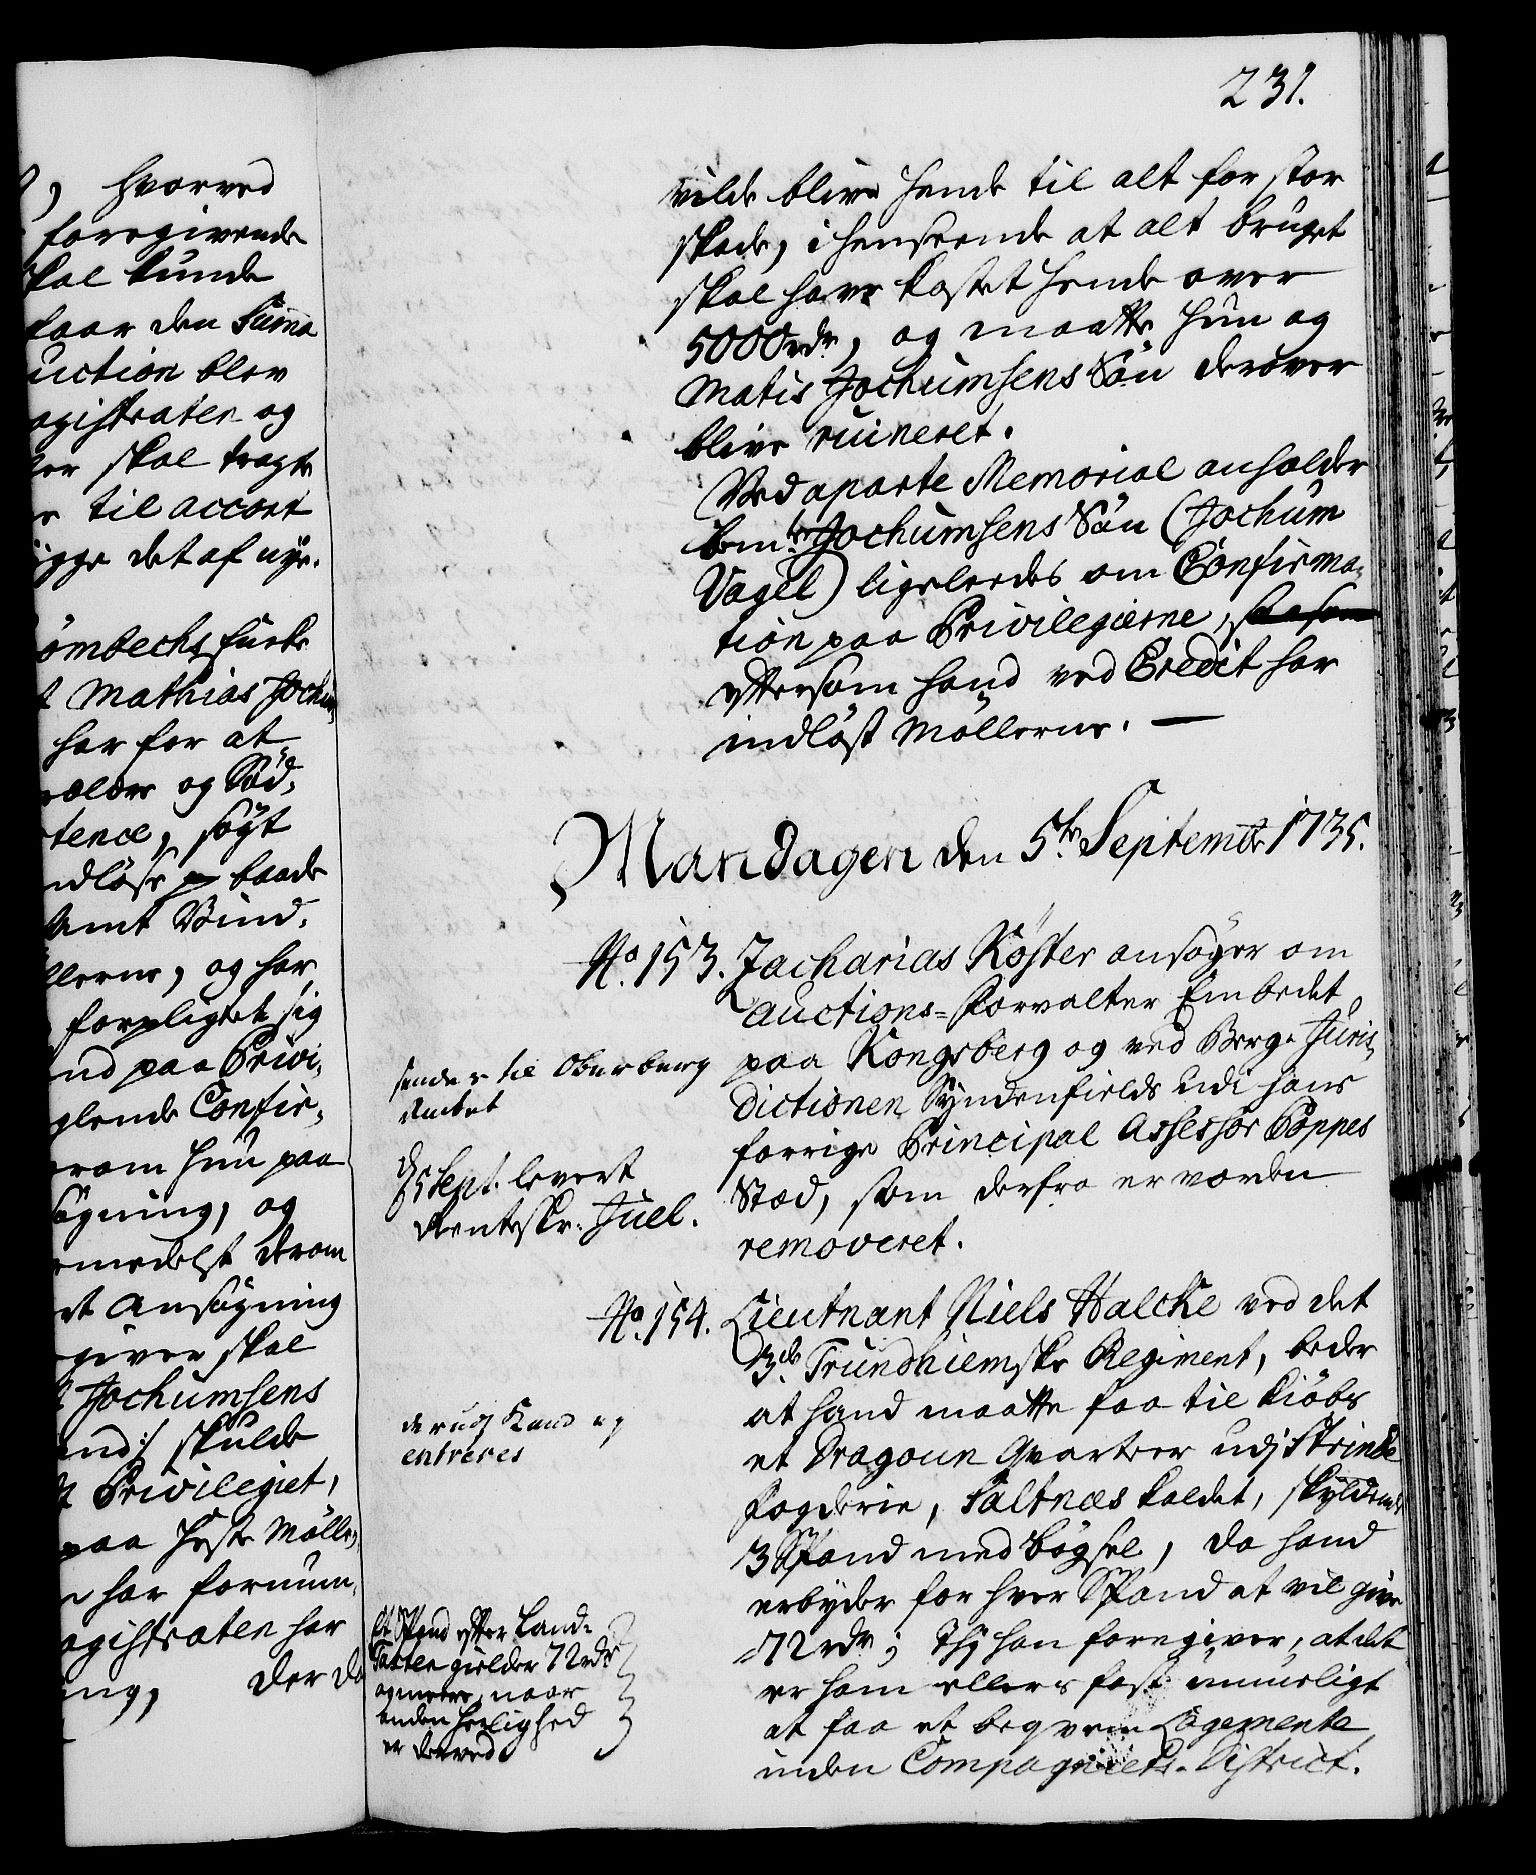 231.
, hvorved
foregivende
skal kunde
faar den Summa
uction blev
agistraten og
ler skal tragte
til accort
igge det af nye.
ömbechs furte
t Mathias Jochum
har for at
og Vöd,
tence, søgt
ndløse baade
Amt Vind,
llerne, og har
forpligtet sig
nd paa Privi,
glende Confir,
erom hun paa
søgning, og
medelst derom
et Ansøgning
giver skal
t Jochumsens
and:/ skulde
t Privilegiet,
paa heste Mølle,
har fornum,
agistraten har
ing,
der da
vilde blive hende til alt for stor
skade, i henseende at alt bruget
skal have kostet hende over
5000 rdr, og maatte hun og
Matis Jochumsens Søn derover
blive ruineret.
Ved aparte Memorial anholder
bemte Jochumsens Søn (Jochum
Vagel) ligeleedes om Confirma,
tion paa Privilegierne, saasom
eftersom hand ved Credit har
indløst Møllerne. —
Mandagen den 5te Septembr 1735.
No. 153. Zacharias Köster ansøger om
Auctions-Forvalter Embedet
paa Kongsberg og ved Berg-Juris,
dictionen Syndenfields udi hans
forrige Principal Assessor Poppes
Stæd, som derfra er vorden
removeret.
sendes til Oberberg
Ambtet
d 5 Sept. levert
Renteskr: Juel.
No. 154. Lieutnant Niels Halcke ved det
3de Trundhiemske Regiment, beder
at hand maatte faa til Kiøbs
et Dragoun Qvarteer udj Strinde
Fogderie, Saltnæs kaldet, skyldende
3 Spand med bøgsel, da hand
erbyder for hver Spand at vil give
72 rdr; Thj han foregiver, at det
er ham ellers fast umueligt
at faa et beqvem Logemente
inden Compagniets District.
derudj Kand ej
entreres
Et Spand efter Land-
Taxten gielder 72 rdr
og meere, naar
anden herlighed
er derved